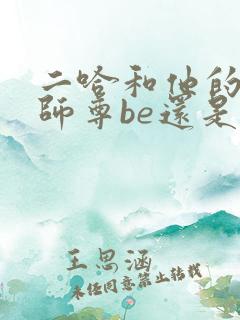 二哈和他的
師尊be還是
王思涵
未经同意禁止转载